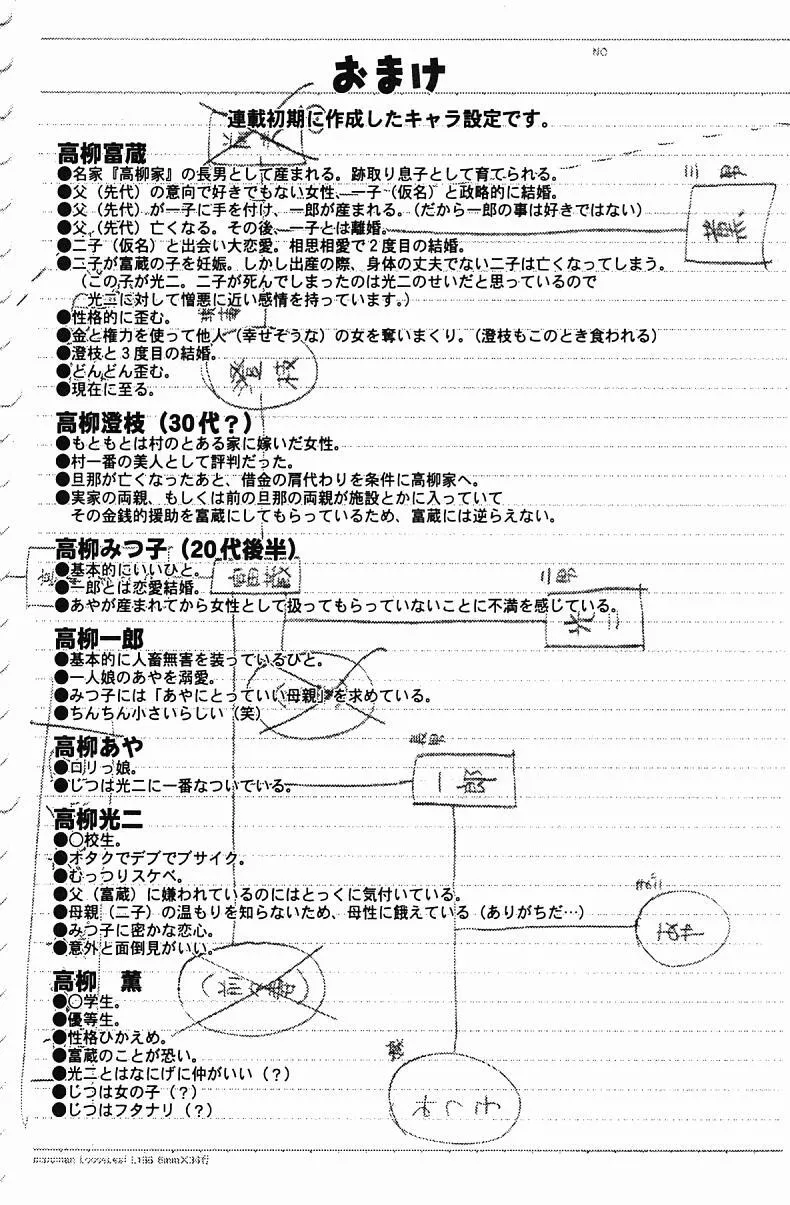 NO
おまけ
連載初期に作成したキャラ設定です。
高柳富蔵
●名家『高柳家』の長男として産まれる。跡取り息子として育てられる。
●父（先代）の意向で好きでもない女性、一子（仮名）と政略的に結婚。
●父（先代）が一子に手を付け、一郎が産まれる。（だから一郎の事は好きではない）
●父（先代）亡くなる。その後、一子とは離婚。
●二子（仮名）と出会い大恋愛。相思相愛で２度目の結婚。
●二子が富蔵の子を妊娠。しかし出産の際、身体の丈夫でない二子は亡くなってしまう。
（この子が光二。二子が死んでしまったのは光二のせいだと思っているので
光二に対して憎悪に近い感情を持っています。）
●性格的に歪む。
●金と権力を使って他人（幸せそうな）の女を奪いまくり。（澄枝もこのとき食われる）
●澄枝と３度目の結婚。
●どんどん歪む。
●現在に至る。
三郎
薫
澄枝
高柳澄枝（30代？）
●もともとは村のとある家に嫁いだ女性。
●村一番の美人として評判だった。
●旦那が亡くなったあと、借金の肩代わりを条件に高柳家へ。
●実家の両親、もしくは前の旦那の両親が施設とかに入っていて
その金銭的援助を富蔵にしてもらっているため、富蔵には逆らえない。
高柳みつ子（20代後半）
●基本的にいいひと。
●一郎とは恋愛結婚。
●あやが産まれてから女性として扱ってもらっていないことに不満を感じている。
富蔵
二郎
光二
高柳一郎
●基本的に人畜無害を装っているひと。
●一人娘のあやを溺愛。
●みつ子には「あやにとっていい母親」を求めている。
●ちんちん小さいらしい（笑）
高柳あや
●ロリっ娘。
●じつは光二に一番なついでいる。
長男
一郎
高柳光二
●〇校生。
●オタクでデブでブサイク。
●むっつりスケベ。
●父（富蔵）に嫌われているのにはとっくに気付いている。
●母親（二子）の温もりを知らないため、母性に餓えている（ありがちだ…）
●みつ子に密かな恋心。
●意外と面倒見がいい。
あや
高柳　薫
●〇学生。
●優等生。
●性格ひかえめ。
●富蔵のことが恐い。
●光二とはなにげに仲がいい（？）
●じつは女の子（？）
●じつはフタナリ（？）
みつ子
maruman LooseLeaf L1